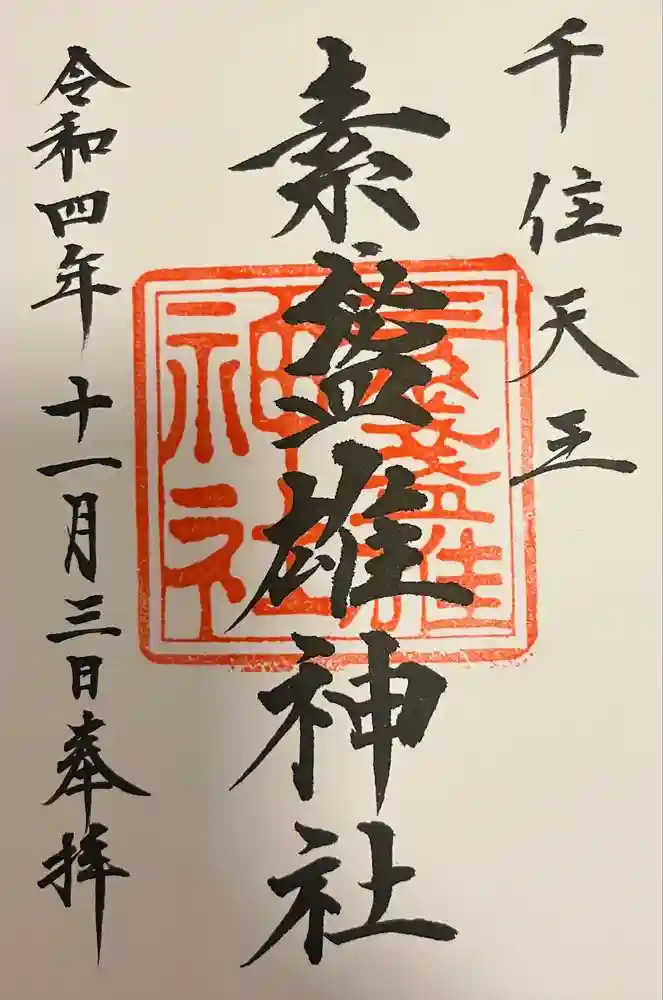 千住天王
素盞雄神社
令和四年十一月三日奉拝
素盞雄
神社